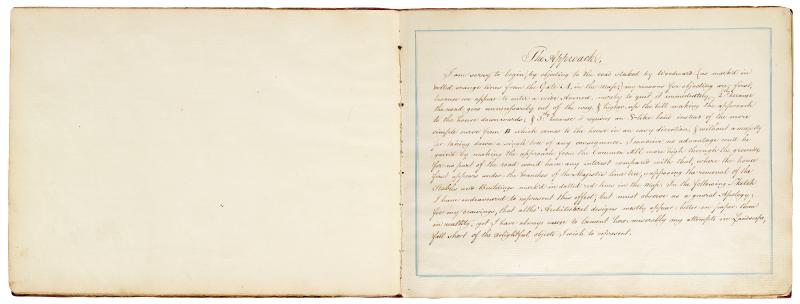 The Approach.
I am sorry to begin by objecting to the road staked by Woodward (as mark'd in
dotted orange lines from the Gate A, in the Map;) my reasons for objecting are; first,
because we appear to enter a wide Avenue, merely to quit it immediately, 2d because
the road goes unnecessarily out of the way, & higher up the hill making the approach
to the house downwards; & 3d because it requires an S-like bend instead of the more
simple curve from B which comes to the house in an easy direction, & without a necessity
for taking down a single tree of any consequence. I conceive no advantage could be
gained by making the approach from the Common Hill more high through the grounds,
for no part of the road would have any interest compared with that, where the house
first appears under the branches of the Majestic lime tree, supposing the removal of the
Stables and Buildings mark'd in dotted red lines in the Map. In the following Sketch
I have endeavoured to represent this effect, but must observe as a general Apology,
for my drawings, that altho' Architectural designs mostly appear better on paper than
in reallity, yet I have always cause to lament how miserably my attempts in Landscape,
fall short of the delightful objects I wish to represent.